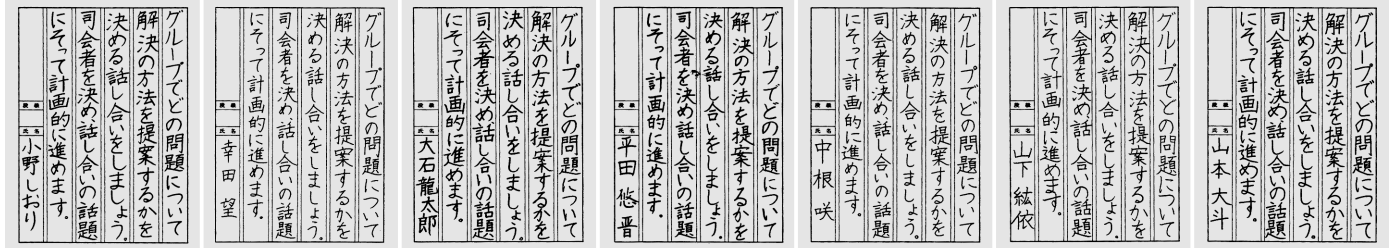 グループでどの問題について
解決の方法を提案するかを
決める話し合いをしましょう。
司会者を決め、話し合いの話題
にそって計画的に進めます。
段級
氏名
小野しおり
グループでどの問題について
解決の方法を提案するかを
決める話し合いをしましょう。
司会者を決め、話し合いの話題
にそって計画的に進めます。
段級
氏名
幸田 望
グループでどの問題について
解決の方法を提案するかを
決める話し合いをしましょう。
司会者を決め、話し合いの話題
にそって計画的に進めます。
段級
氏名
大石龍太郎
グループでどの問題について
解決の方法を提案するかを
決める話し合いをしましょう。
司会者を決め、話し合いの話題
にそって計画的に進めます。
段級
氏名
平田悠晋
グループでどの問題について
解決の方法を提案するかを
決める話し合いをしましょう。
司会者を決め、話し合いの話題
にそって計画的に進めます。
段級
氏名
中根 咲
グループでどの問題について
解決の方法を提案するかを
決める話し合いをしましょう。
司会者を決め、話し合いの話題
にそって計画的に進めます。
段級
氏名
山下紘依
グループでどの問題について
解決の方法を提案するかを
決める話し合いをしましょう。
司会者を決め、話し合いの話題
にそって計画的に進めます。
段級
氏名
山本大斗